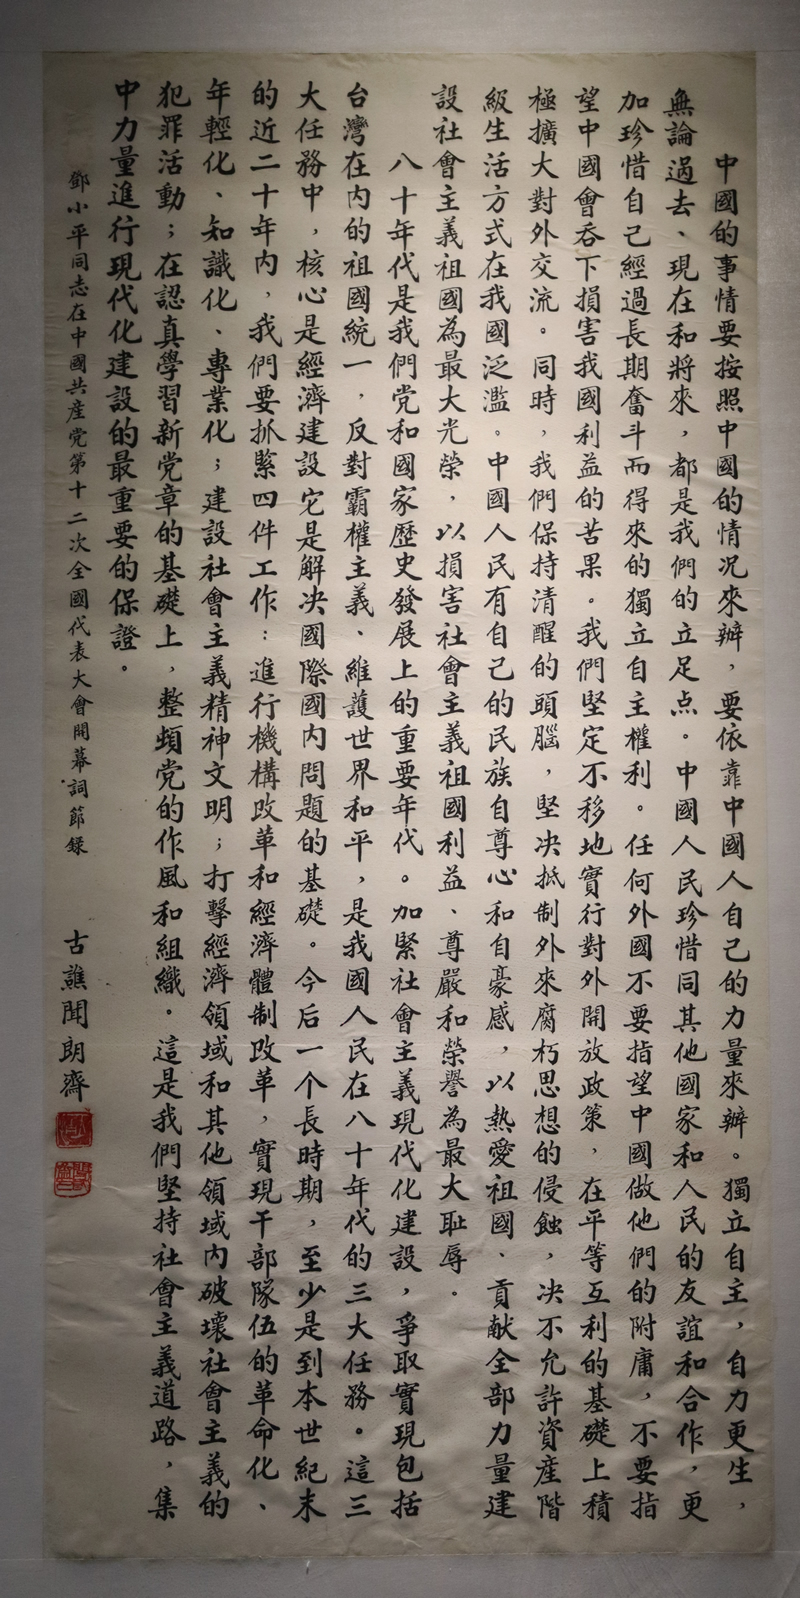 中國的事情要按照中國的情况來辦，要依靠中國人自己的力量來辦。獨立自主，自力更生，
無論過去、現在和將來，都是我們的立足点。中國人民珍惜同其他國家和人民的友誼和合作，更
加珍惜自己經過長期奮斗而得來的獨立自主權利。任何外國不要指望中國做他們的附庸，不要指
望中國會吞下損害我國利益的苦果。我們堅定不移地實行對外開放政策，在平等互利的基礎上積
極擴大對外交流。同時，我們保持清醒的頭腦，堅决抵制外來腐朽思想的侵蝕，决不允許資產階
級生活方式在我國泛濫。中國人民有自己的民族自尊心和自豪感，以熱愛祖國、貢献全部力量建
設社會主義祖國為最大光榮，以損害社會主義祖國利益、尊嚴和榮譽為最大耻辱。
八十年代是我們党和國家歷史發展上的重要年代。加緊社會主義現代化建設，爭取實現包括
台灣在内的祖國統一，反對霸權主義、維護世界和平，是我國人民在八十年代的三大任務。這三
大任務中，核心是經濟建設它是解决國際國内問題的基礎。今后一个長時期，至少是到本世紀末
的近二十年内，我們要抓緊四件工作：進行機構改革和經濟體制改革，實現干部隊伍的革命化、
年輕化、知識化、專業化；建設社會主義精神文明；打擊經濟領域和其他領域内破壞社會主義的
犯罪活動；在認真學習新党章的基礎上，整頓党的作風和組織。這是我們堅持社會主義道路，集
中力量進行現代化建設的最重要的保證。
鄧小平同志在中國共産党第十二次全國代表大會開幕詞節録
古譙聞朗齋